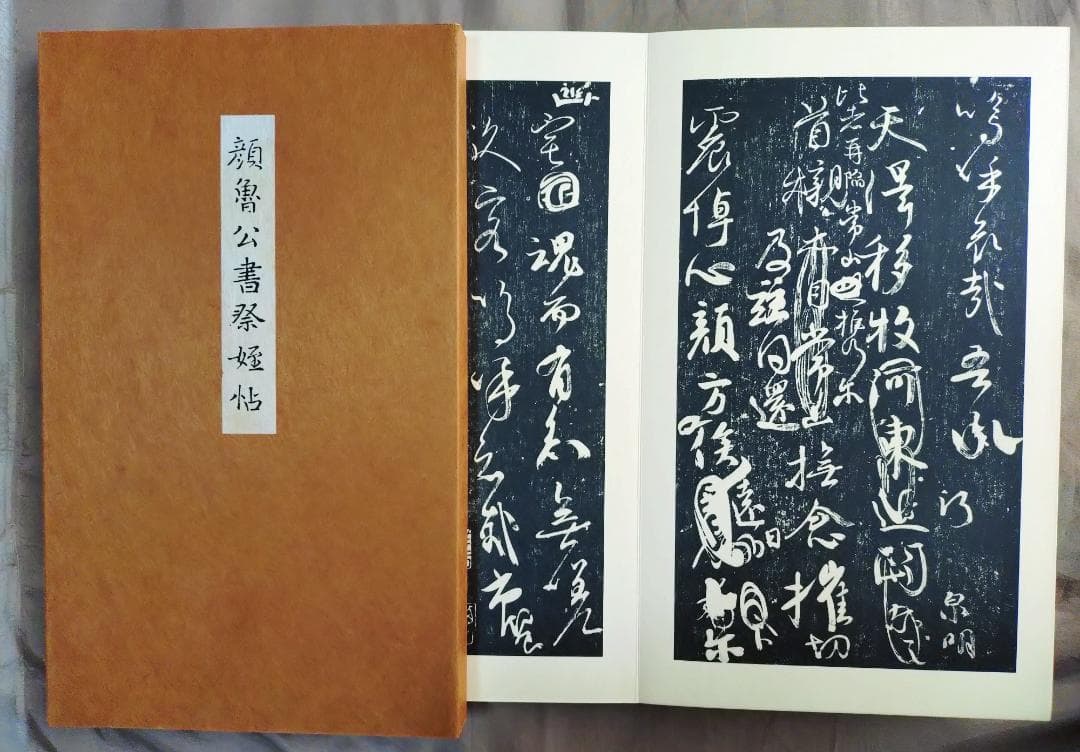 顏魯公書祭姪帖
嗚乎哀哉吾承
泉明
天澤移牧河東近關
比者再陷常山攜爾
首櫬亦自常山撫念摧切
及茲同還
震悼心顏方俟
遠日
卜爾
幽宅魂而有知無嗟
久客嗚呼哀哉尚饗